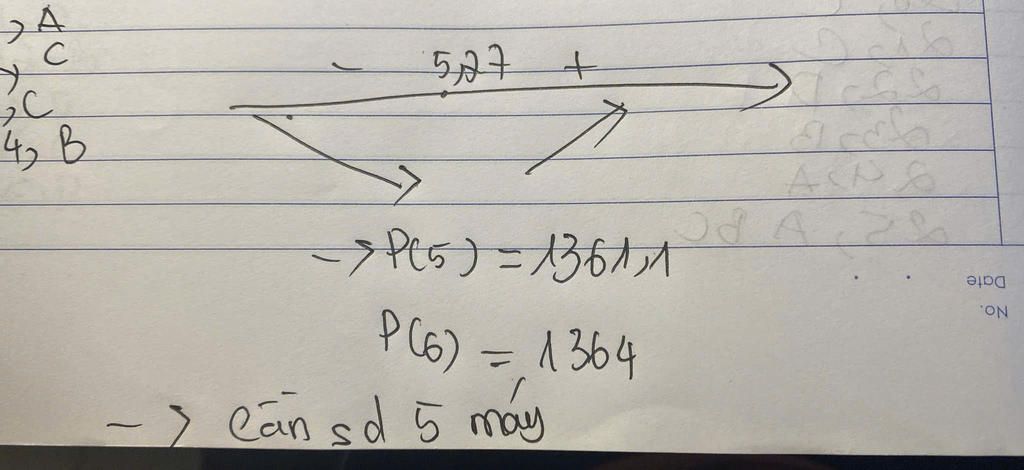 , A
C
, C
4, B
- 5,27 +
→ P(5) = 1361,1
P(6) = 1364
→ Cần sd 5 máy
Date
No.